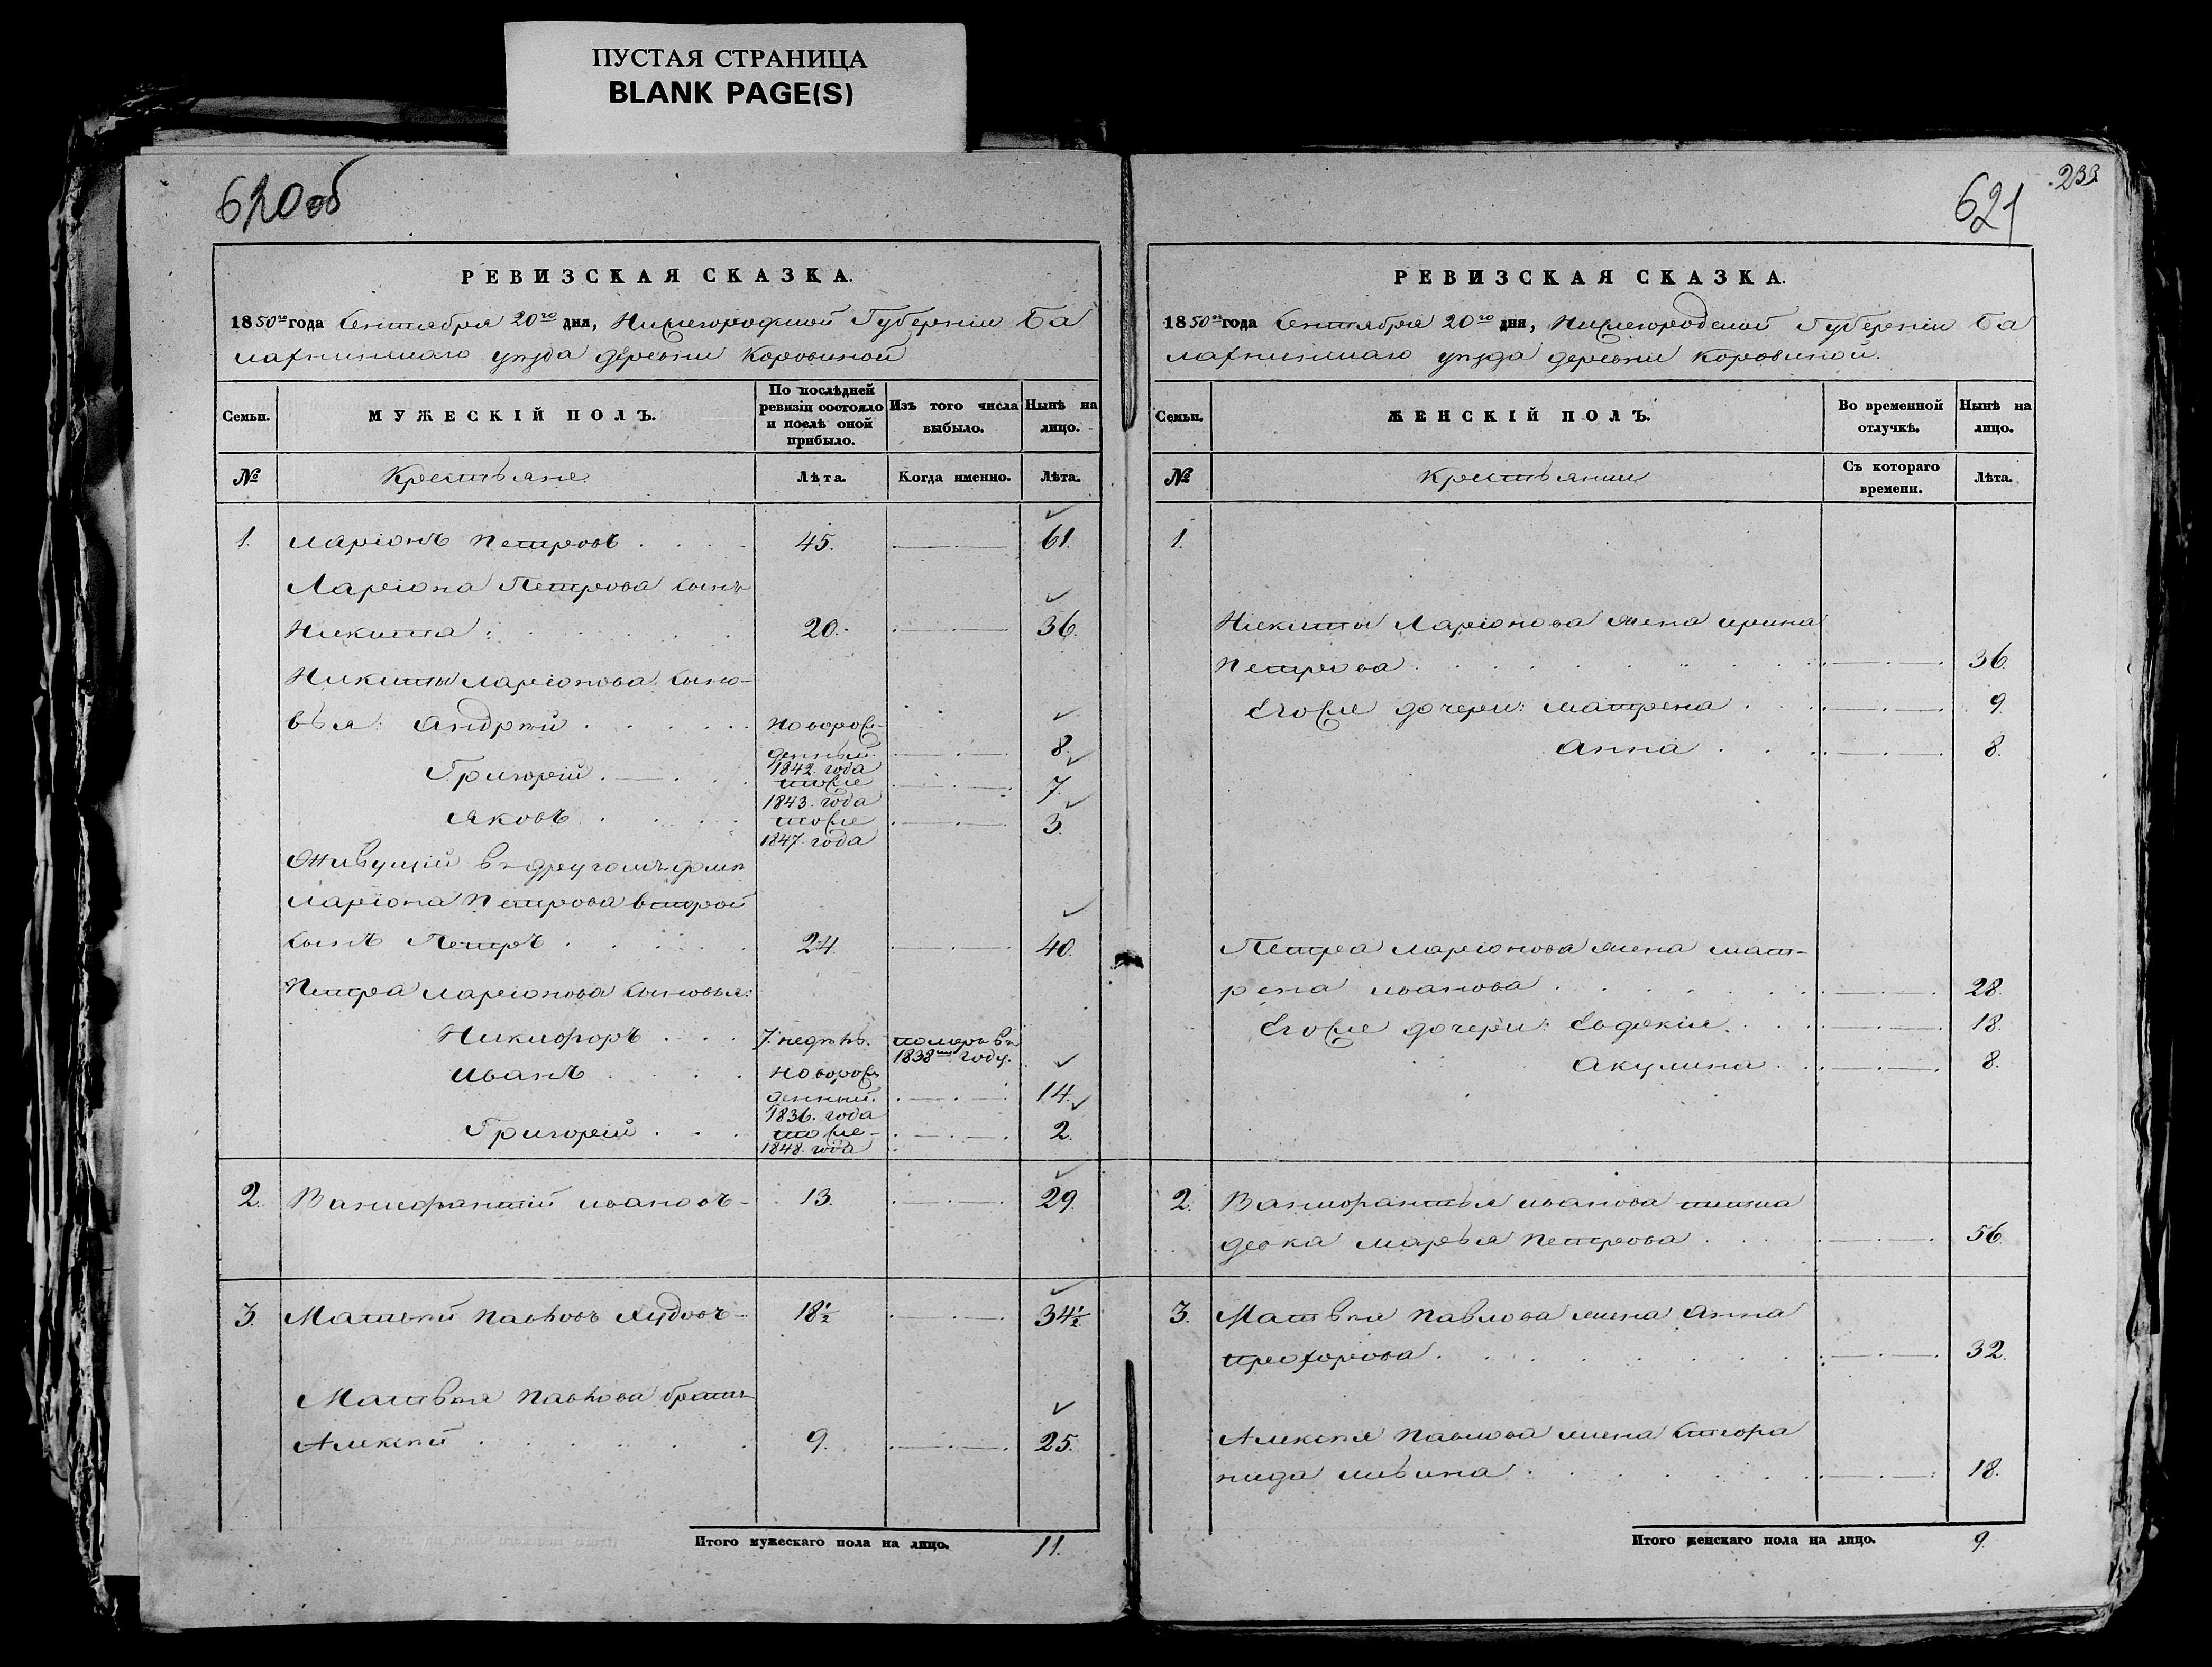 ПУСТАЯ СТРАНИЦА
BLANK PAGE(S)
620об
РЕВИЗСКАЯ СКАЗКА.
1850го года Сентября 20го дня, Нижегородской Губерніи Ба
лахнинскаго уѣзда деревни Коровиной
Семьи.
МУЖЕСКІЙ ПОЛЪ.
По послѣдней ревизіи состояло и послѣ оной прибыло.
Изъ того числа выбыло.
Нынѣ на лицо.
№ Крестьяне Лѣта. Когда именно. Лѣта.
1. Ларіонъ Петровъ 45. 61.
Ларіона Петрова сынъ
Никита: 20. 36.
Никиты Ларіонова сыно-
вья: Андрѣй новорож-
денный. 8.
1842. года
Григорій тоже 7.
1843. года
Яковъ тоже 3.
1847. года
Живущій въ другомъ домѣ
Ларіона Петрова второй
сынъ Петръ 24. 40.
Петра Ларіонова сыновья:
Никифоръ 7. недѣль. померъ въ
1838мъ году.
Иванъ новорож
денный. 14.
1836. года
Григорій тоже 2.
1848. года
2. Ванифантій Ивановъ 13. 29.
3. Матвѣй Павловъ Худовъ 18½ 34½
Матвѣя Павлова братъ
Алексѣй 9. 25.
Итого мужескаго пола на лицо. 11.
239.
621
РЕВИЗСКАЯ СКАЗКА.
1850го года Сентября 20го дня, Нижегородской Губерніи Ба
лахнинскаго уѣзда деревни Коровиной.
Семьи.
ЖЕНСКІЙ ПОЛЪ.
Во временной отлучкѣ.
Нынѣ на лицо.
№ Крестьянки Съ котораго времени. Лѣта.
1.
Никиты Ларіонова жена Ирина
Петрова 36.
Егоже дочери: Матрена 9.
Анна 8.
Петра Ларіонова жена Мат-
рена Иванова 28.
Егоже дочери: Евдокія 18.
Акулина 8.
2. Ванифантья Иванова тетка
девка Марья Петрова 56.
3. Матвѣя Павлова жена Анна
Прохорова 32.
Алексѣя Павлова жена Степа
нида Ильина 18.
Итого женскаго пола на лицо. 9.